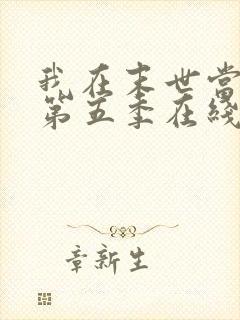 我在末世当
第五季在线
章新生